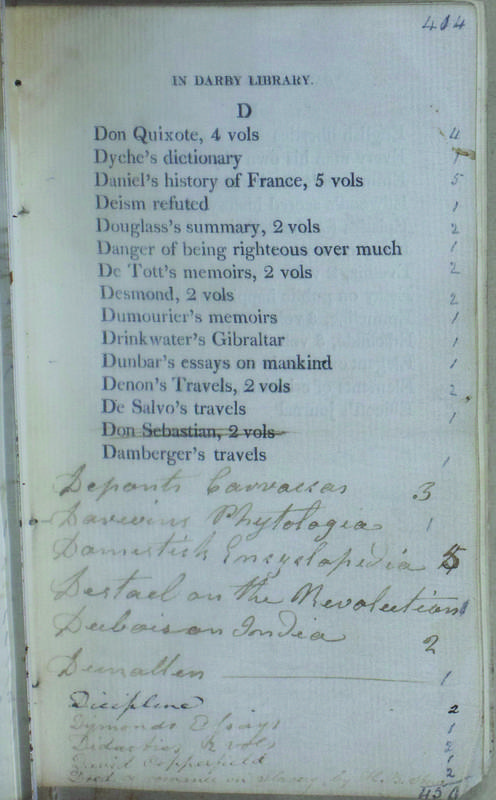 404
IN DARBY LIBRARY.
D
Don Quixote, 4 vols 4
Dyche's dictionary 1
Daniel's history of France, 5 vols 5
Deism refuted 1
Douglass's summary, 2 vols 2
Danger of being righteous over much 1
De Tott's memoirs, 2 vols 2
Desmond, 2 vols 2
Dumourier's memoirs 1
Drinkwater's Gibraltar 1
Dunbar's essays on mankind 1
Denon's Travels, 2 vols 2
De Salvo's travels 1
Don Sebastian, 2 vols
Damberger's travels 1
Deponts 3
Darwins Phytologia 1
Domestick Encyclopedia 5
Destael on the Revolution
Dubois on India 2
Dunallen 1
Discipline 2
Dymonds Essays 1
Didactics, 2 vols 2
David Copperfield 1
Dred a romance on slavery by 2